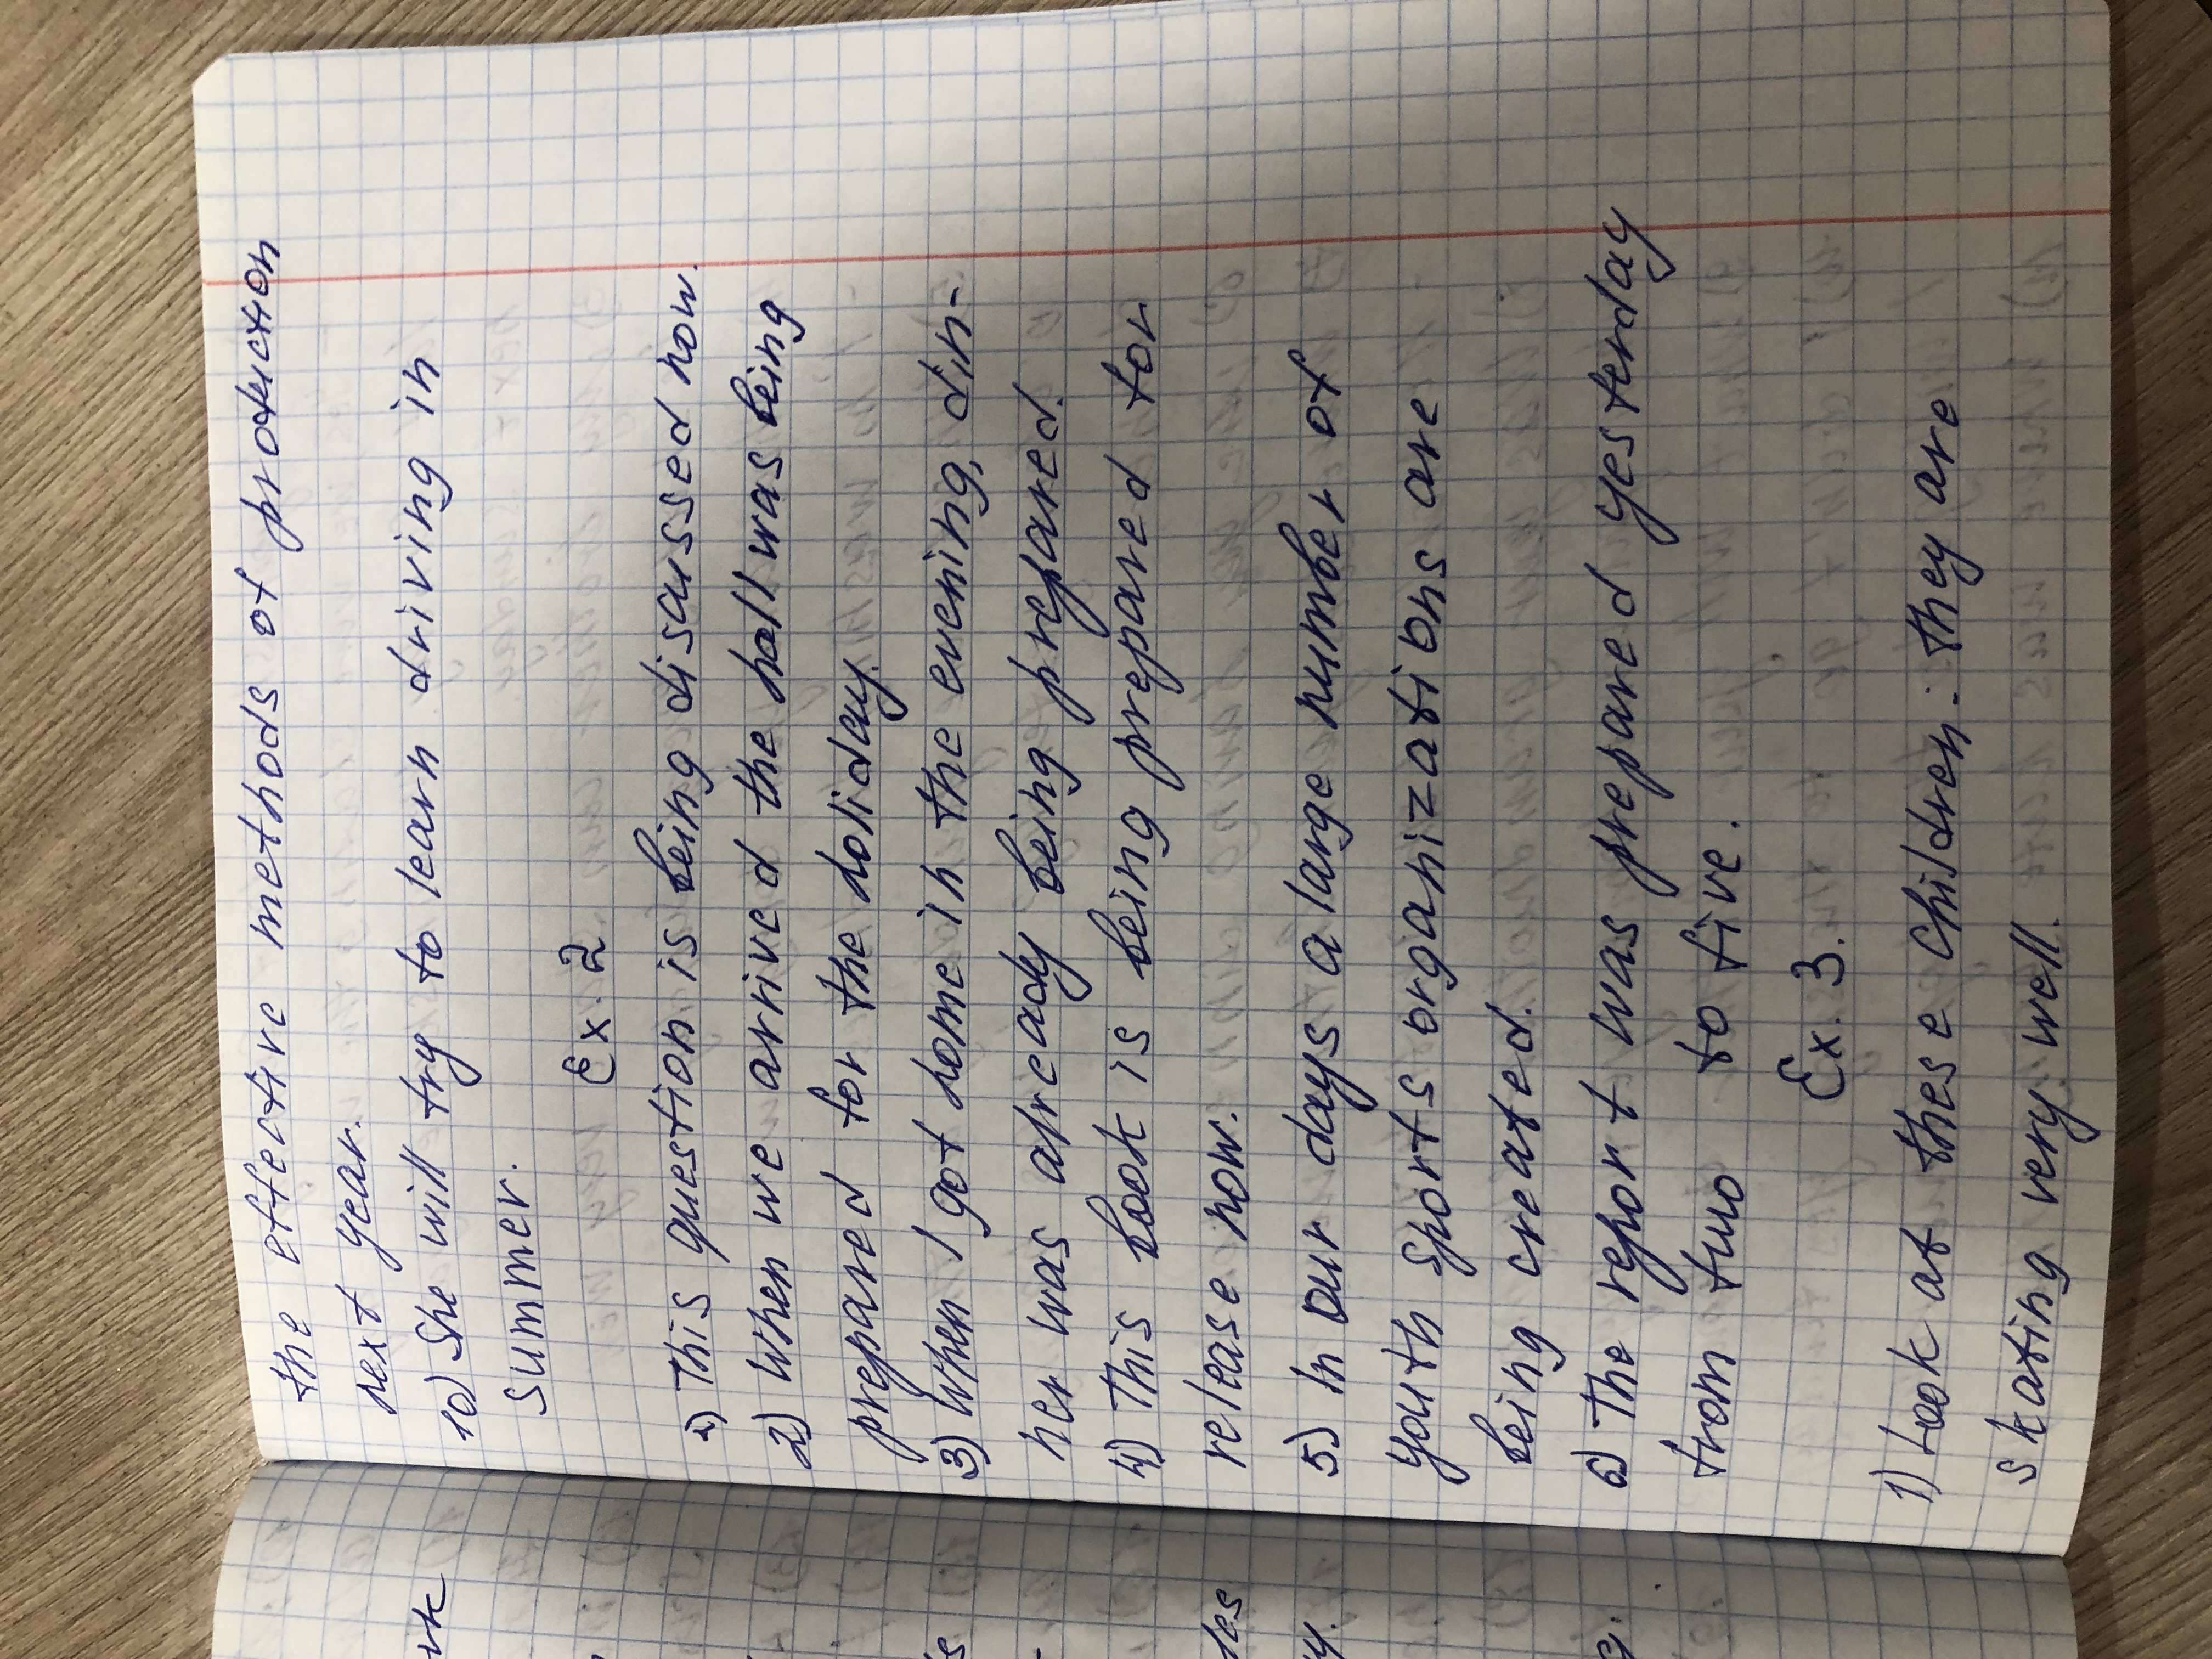 the effective methods of production
next year.
10) She will try to learn driving in
summer.
Ex. 2
1) This question is being discussed now.
2) When we arrived the hall was being
prepared for the holiday.
3) When I got home in the evening, din-
ner was already being prepared.
4) This book is being prepared for
release now.
5) In our days a large number of
youth sports organizations are
being created.
6) The report was prepared yesterday
from two to five.
Ex. 3.
1) Look at these children: they are
skating very well.